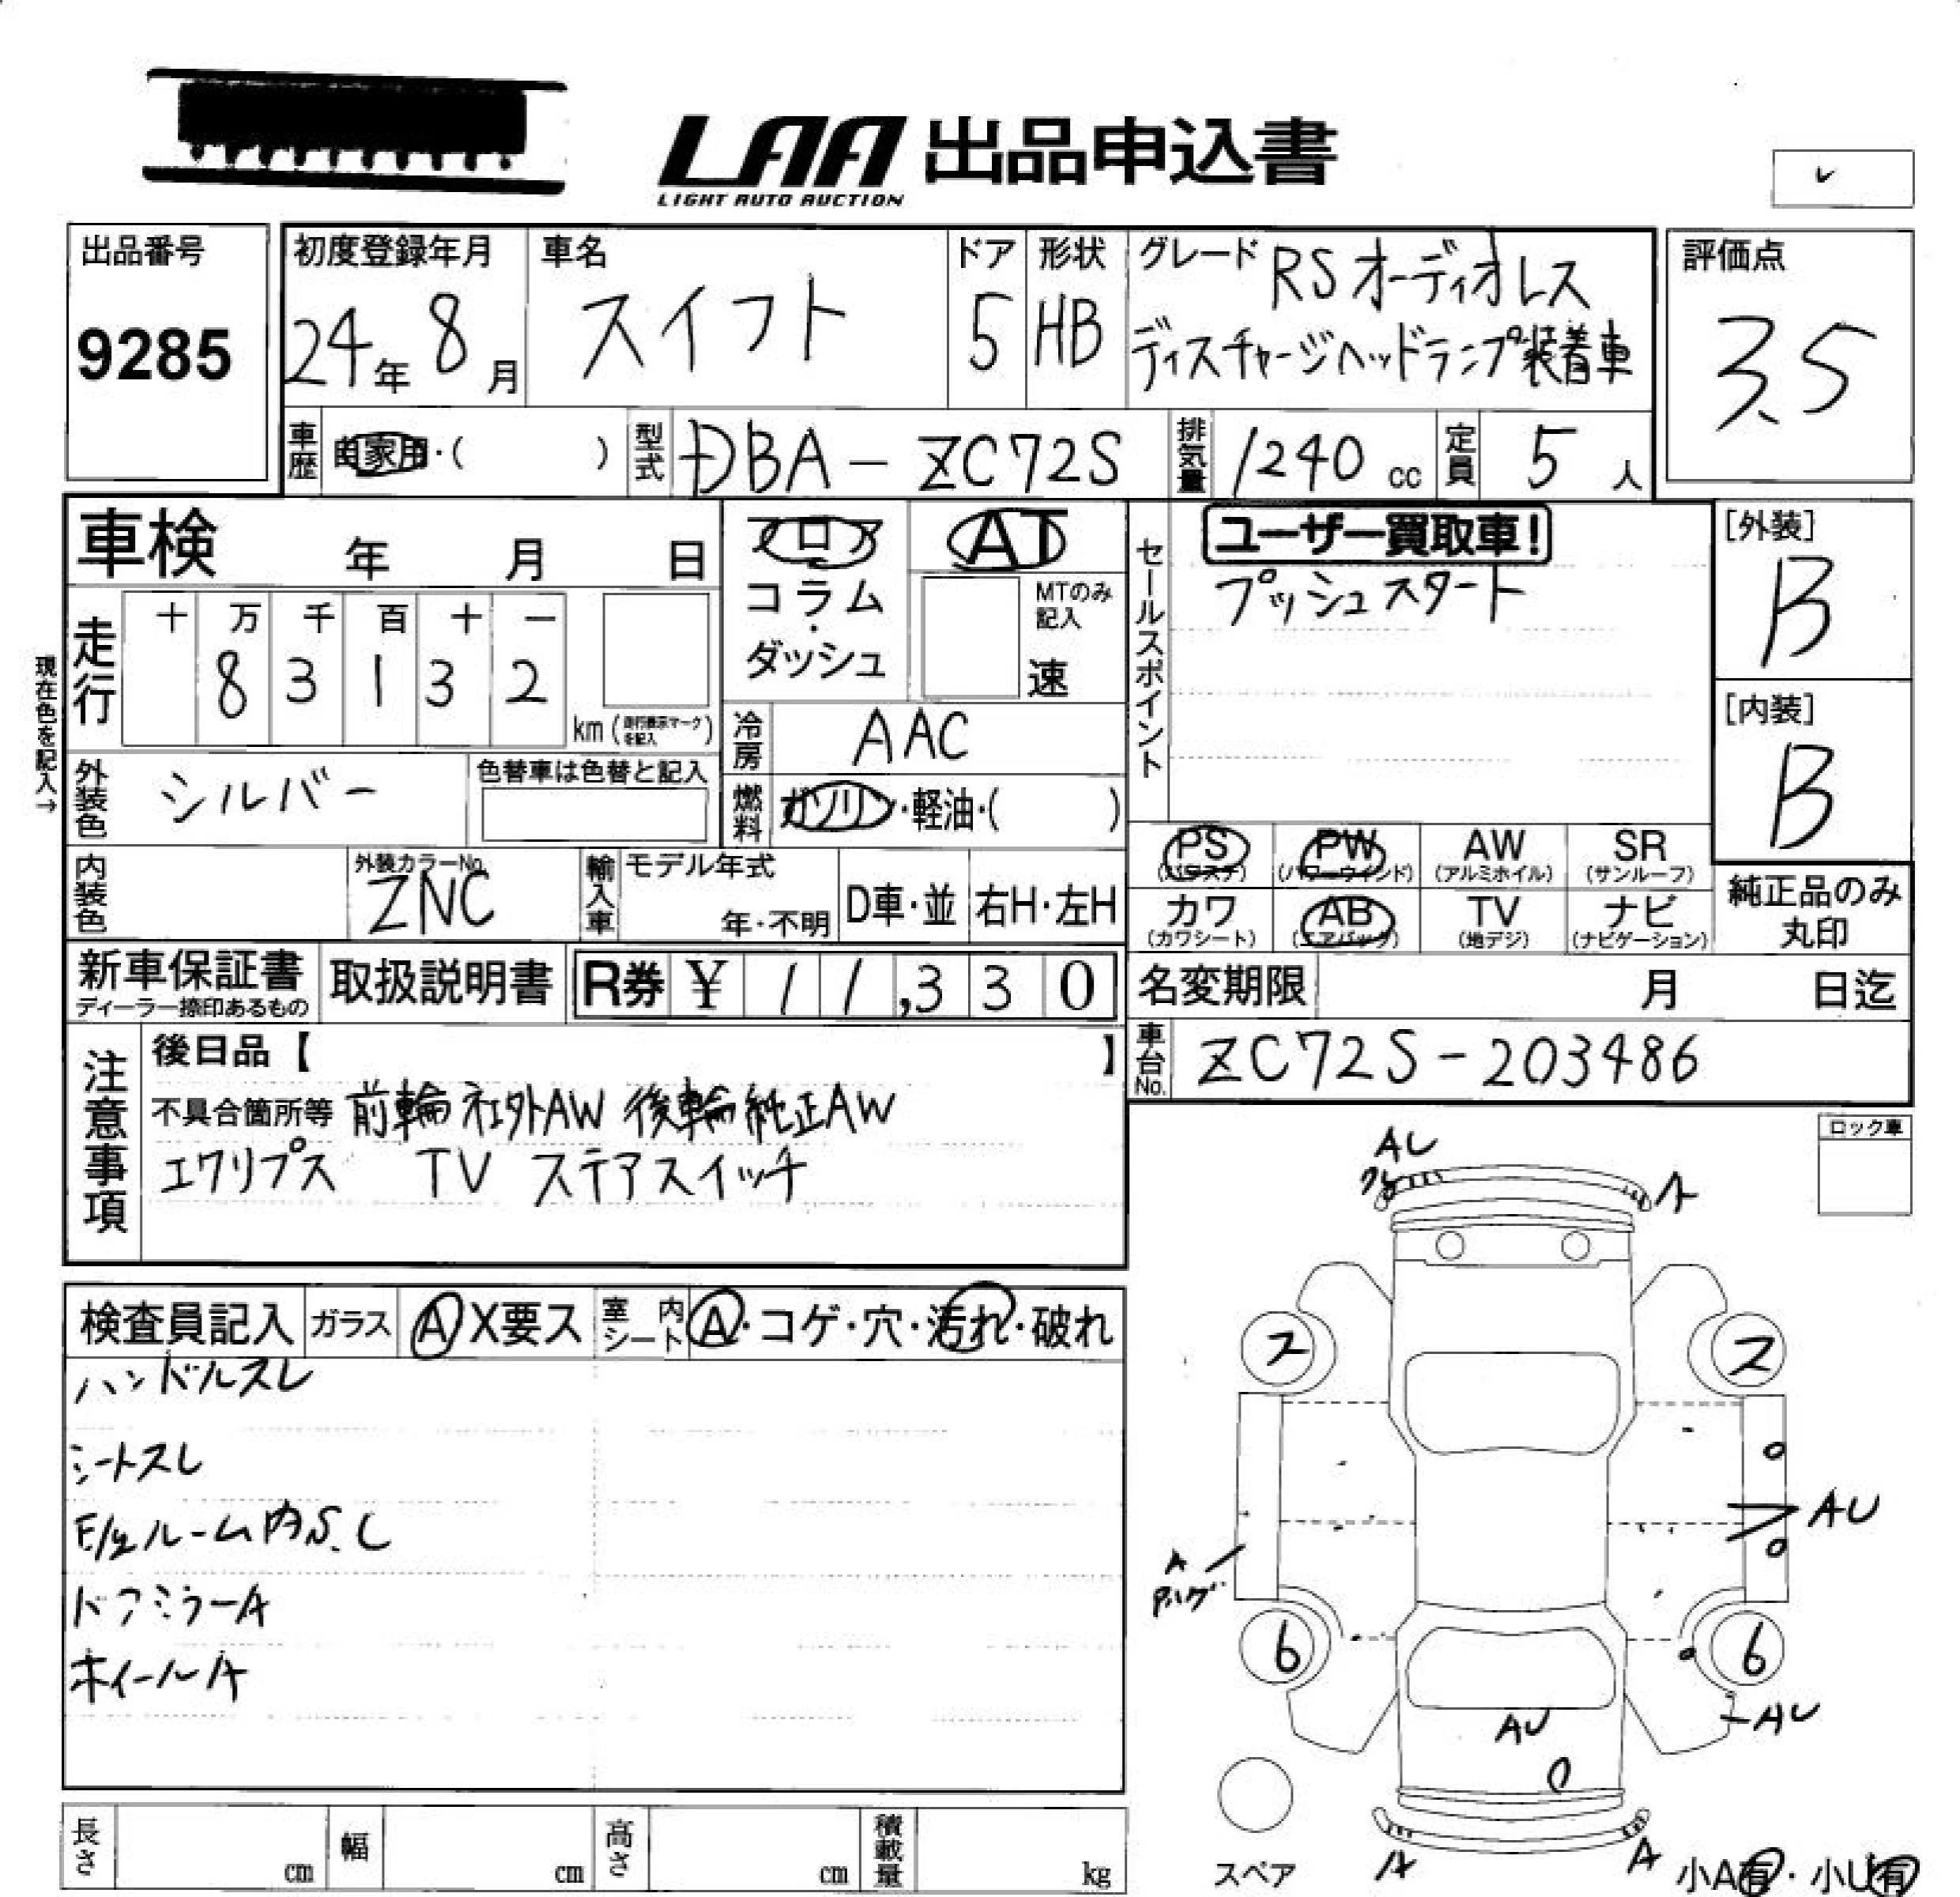 LAA 出品申込書
LIGHT AUTO AUCTION
出品番号
9285
初度登録年月
24年 8月
車名
スイフト
ドア
5
形状
HB
グレード RSオーディオレス
ディスチャージヘッドランプ装着車
評価点
3.5
車歴 自家用・( )
型式 DBA-ZC72S
排気量 1240 cc
定員 5 人
車検 年 月 日
フロア
コラム
・
ダッシュ
AT
MTのみ
記入
速
セールスポイント
ユーザー買取車!
プッシュスタート
[外装]
B
[内装]
B
現在色を記入→
走行
十 万 千 百 十 一
8 3 1 3 2
km (走行表示マークを記入)
冷房 AAC
外装色 シルバー
色替車は色替と記入
燃料 ガソリン・軽油・( )
内装色
外装カラーNo.
ZNC
輸入車
モデル年式
年・不明
D車・並
右H・左H
PS
(パワステ)
PW
(パワーウインド)
AW
(アルミホイル)
SR
(サンルーフ)
カワ
(カワシート)
AB
(エアバッグ)
TV
(地デジ)
ナビ
(ナビゲーション)
純正品のみ
丸印
新車保証書
ディーラー捺印あるもの
取扱説明書
R券 ¥ 11,330
名変期限 月 日迄
車台No. ZC72S-203486
注意事項
後日品【 】
不具合箇所等 前輪社外AW 後輪純正AW
エクリプス TV ステアスイッチ
ロック車
検査員記入
ガラス A X要ス
室内シート A・コゲ・穴・汚れ・破れ
ハンドルスレ
シートスレ
E/gルーム内S.C
ドアミラーA
ホイールA
AU
A
ス
ス
AU
A
6
6
AU
AU
A
A
スペア
小A有・小U有
長さ cm
幅 cm
高さ cm
積載量 kg